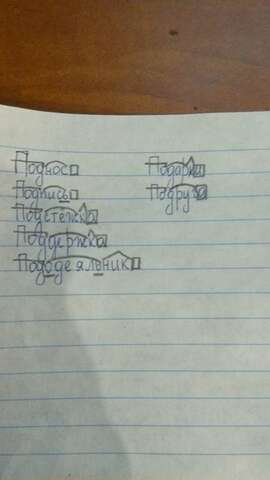 Поднос
Подпись
Подстежка
Поддержка
Пододеяльник
Подарки
Подруга